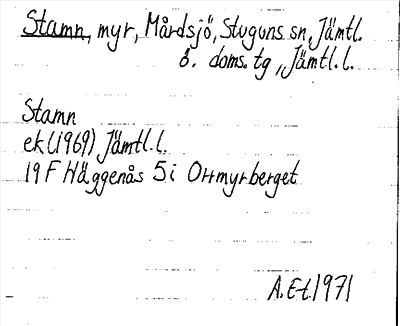 Stamn, myr, Mårdsjö, Stuguns sn, Jämtl.
ö. doms. tg, Jämtl. l.
Stamn
ek (1969) Jämtl. l.
19 F Häggenås 5 i Orrmyrberget
A. E-t. 1971